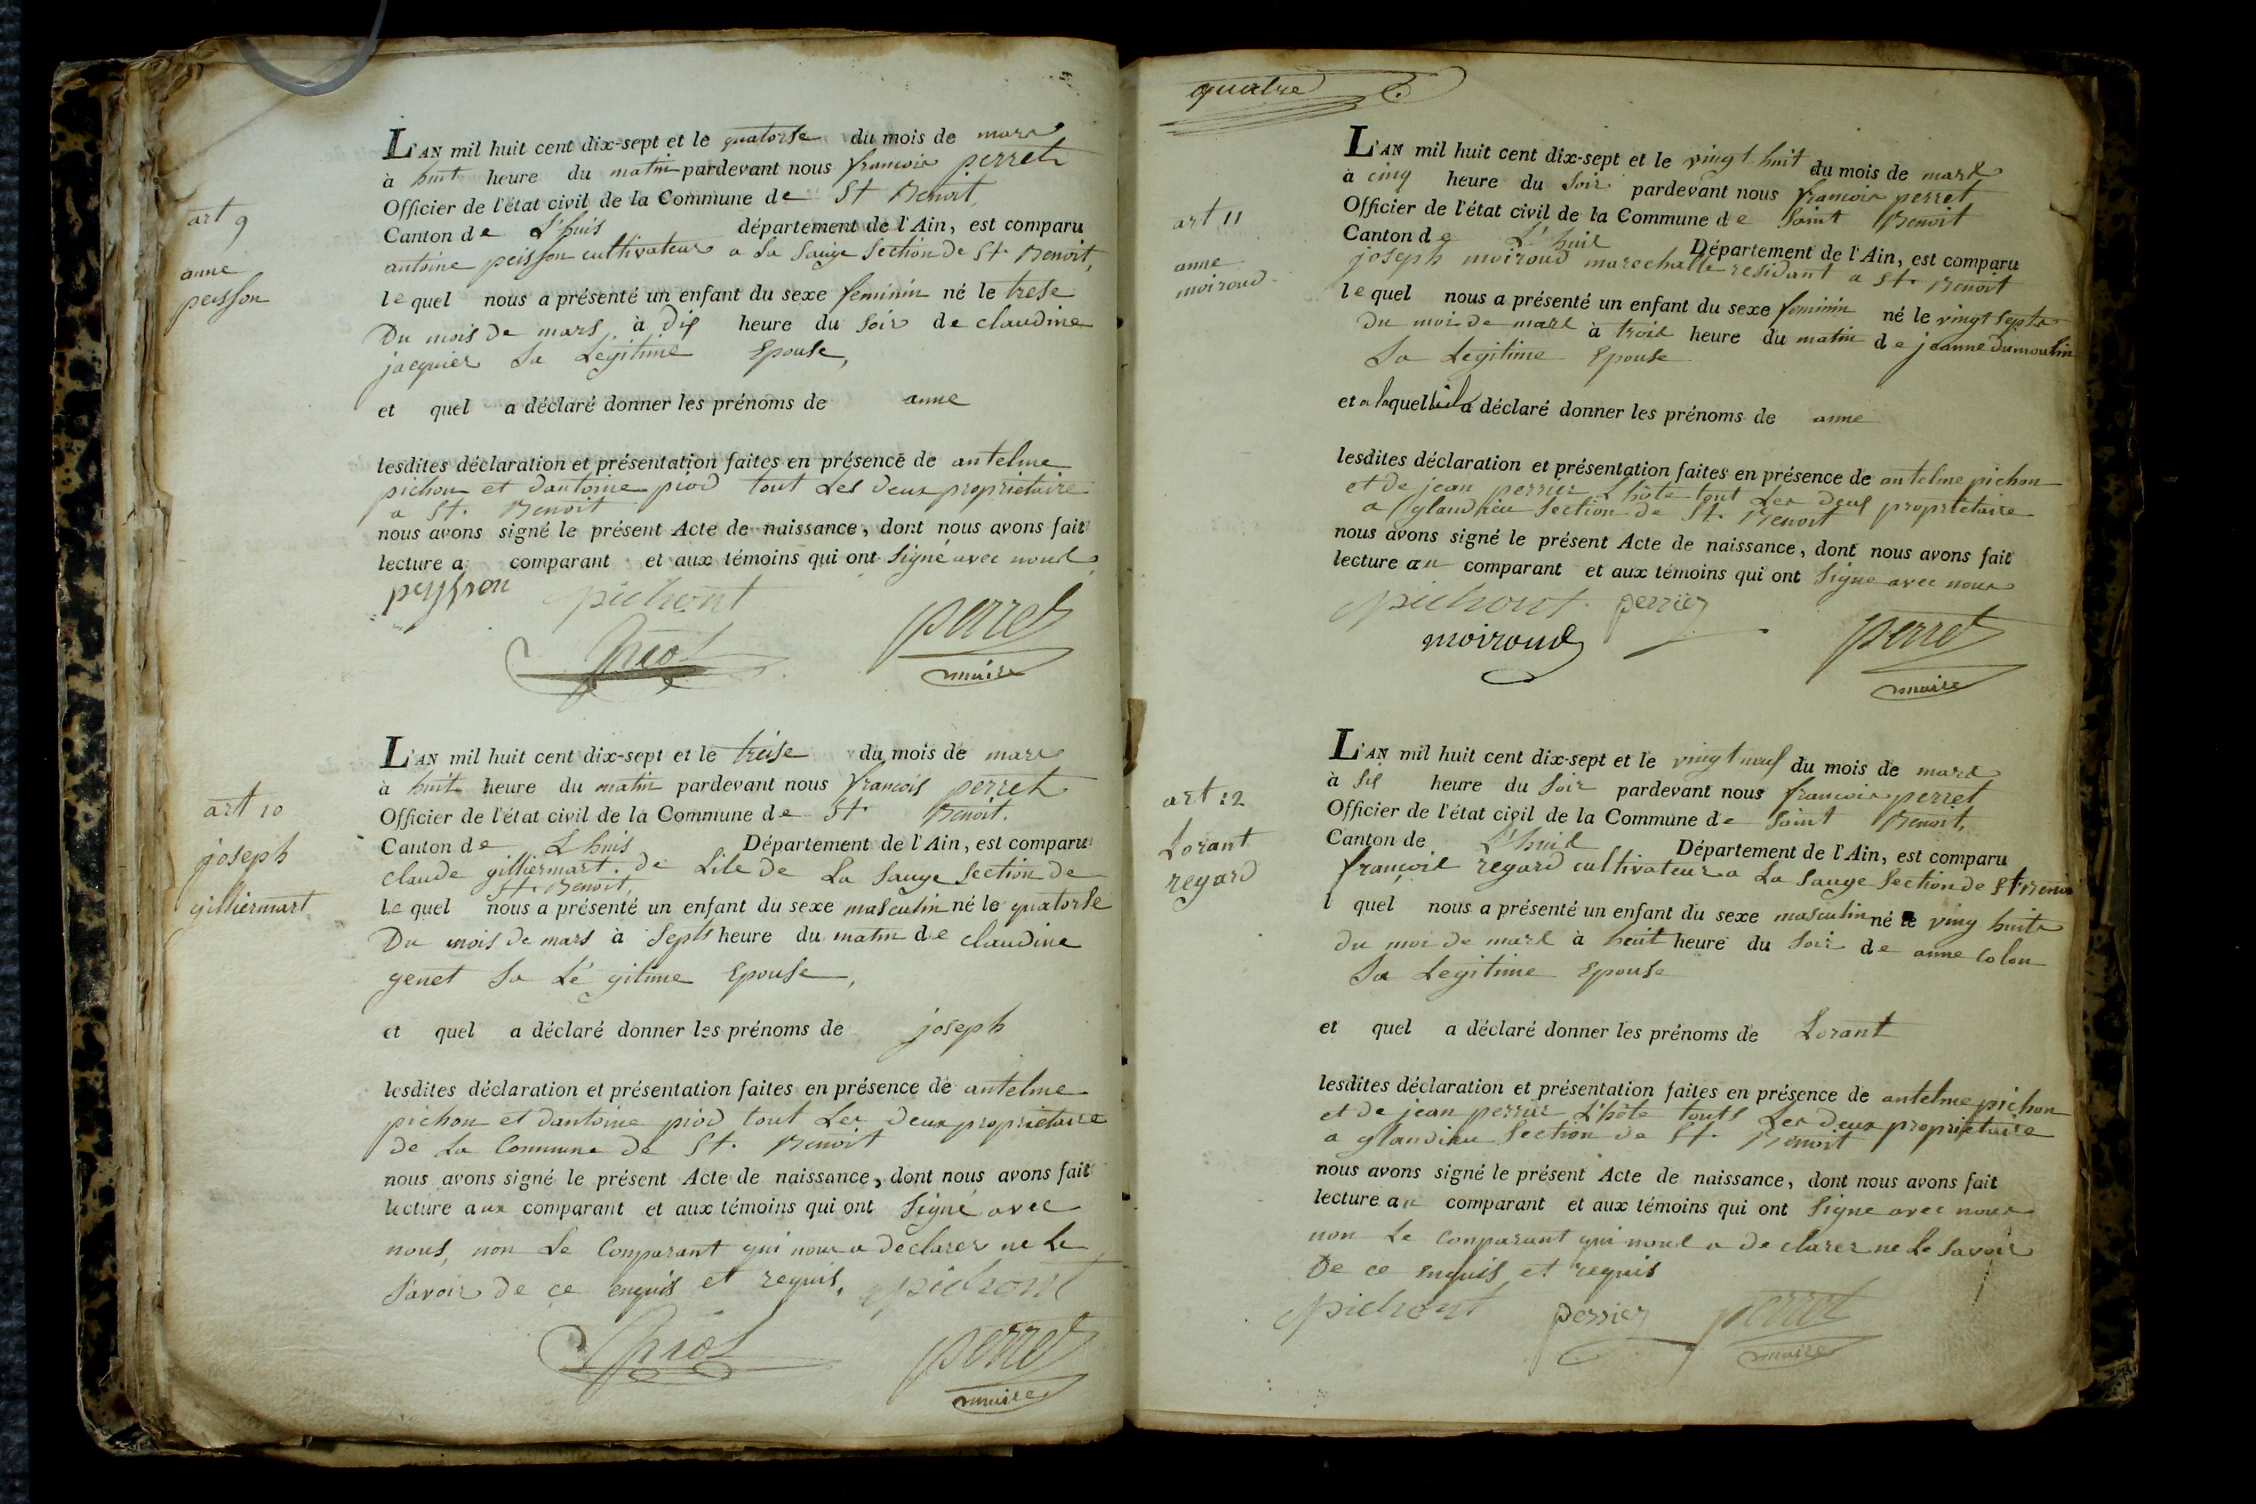 art 9
anne
peisson
L'AN mil huit cent dix-sept et le quatorse du mois de mars
à huit heure du matin pardevant nous francois perret
Officier de l'état civil de la Commune de St Benoit,
Canton de L'huis département de l'Ain, est comparu
antoine peisson cultivateur a La Sauge Section de St. Benoit,
lequel nous a présenté un enfant du sexe feminin né le trese
Du mois de mars, à dis heure du soir de claudine
jacquier Sa Légitime Epouse,
et quel a déclaré donner les prénoms de anne
lesdites déclaration et présentation faites en présence de antelme
pichon et dantoine piod tout Les deux proprietaire
a St. Benoit
nous avons signé le présent Acte de naissance, dont nous avons fait
lecture a comparant et aux témoins qui ont Signé avec nous
peysson pichont
piod perret
maire
art 10
joseph
gilliermart
L'AN mil huit cent dix-sept et le treise du mois de mars
à huit heure du matin pardevant nous francois perret
Officier de l'état civil de la Commune de St. Benoit.
Canton de L huis Département de l'Ain, est comparu
claude gilliermart. de Lile de La Sauge Section de
St. Benoit,
Le quel nous a présenté un enfant du sexe masculin né le quatorse
Du mois de mars à Septs heure du matin de claudine
genet Sa Lé gitime Epouse,
et quel a déclaré donner les prénoms de joseph
lesdites déclaration et présentation faites en présence de antelme
pichon et dantoine piod tout Les deux proprietaire
de La Commune de St. Benoit
nous avons signé le présent Acte de naissance, dont nous avons fait
lecture aux comparant et aux témoins qui ont Signé avec
nous, non Le Comparant qui nous a declarer ne Le
Savoir de ce enquis et requis. pichont
piod perret
maire
quatre
art 11
anne
moiroud
L'AN mil huit cent dix-sept et le vingt huit du mois de mars
à cinq heure du Soir pardevant nous francois perret
Officier de l'état civil de la Commune de Saint Benoit
Canton de L'huis Département de l'Ain, est comparu
joseph moiroud marechalle residant a St. Benoit
lequel nous a présenté un enfant du sexe feminin né le vingt Septs
du moi de mars à trois heure du matin de jeanne dumoulin
Sa Legitime Epouse
et a laquelle il a déclaré donner les prénoms de anne
lesdites déclaration et présentation faites en présence de antelme pichon
et de jean perrier L'hôte tout Les deus proprietaire
a glandieu Section de St. Benoit
nous avons signé le présent Acte de naissance, dont nous avons fait
lecture au comparant et aux témoins qui ont Signe avec nous
pichont. perrier
moiroud perret
maire
art 12
Lorant
regard
L'AN mil huit cent dix-sept et le vingt neuf du mois de mars
à Sis heure du Soir pardevant nous francois perret
Officier de l'état civil de la Commune de Saint Benoit,
Canton de L'huis Département de l'Ain, est comparu
françois regard cultivateur a La Sauge Section de St Benoit
l quel nous a présenté un enfant du sexe masculin né le ving huits
du moi de mars à heuit heure du Soir de anne Colon
Sa Legitime Epouse
et quel a déclaré donner les prénoms de Lorant
lesdites déclaration et présentation faites en présence de antelme pichon
et de jean perrier L'hôte touts Les deux proprietaire
a glandieu Section de St. Benoit
nous avons signé le présent Acte de naissance, dont nous avons fait
lecture au comparant et aux témoins qui ont Signe avec nous
non Le Conparant qui nous a declarer ne Le Savoir
De ce enquis et requis
pichont perrier perret
maire